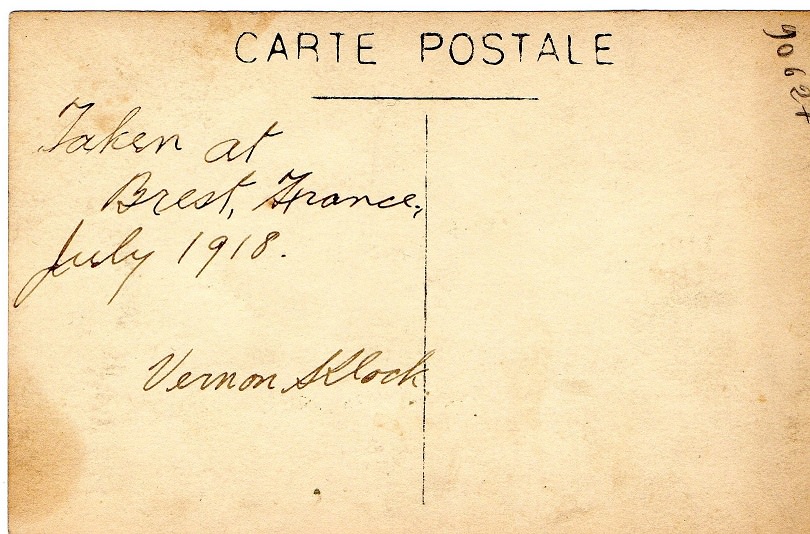 CARTE POSTALE
Taken at
Brest, France,
July 1918.
Vernon Klock